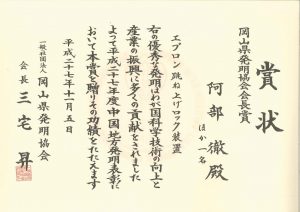 賞状
岡山県発明協会会長賞
阿部 徹殿
ほか一名
エプロン跳ね上げロック装置
右の優秀な発明はわが国科学技術の向上と
産業の振興に多くの貢献をされました
よって平成二十七年度中国地方発明表彰に
おいて本賞を贈りその功績をたたえます
平成二十七年十一月五日
一般社団法人 岡山県発明協会
会長 三宅 昇